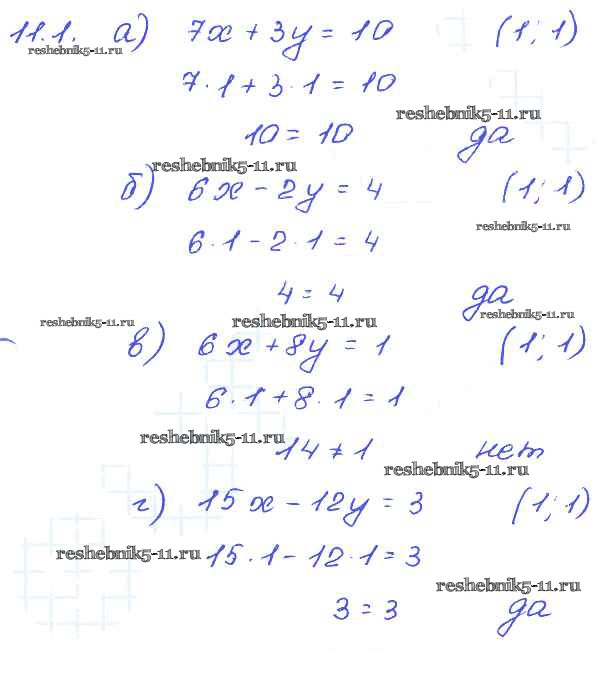 11.1. а) 7x + 3y = 10 (1; 1)
reshebnik5-11.ru
7·1 + 3·1 = 10
reshebnik5-11.ru
10 = 10 да
reshebnik5-11.ru
б) 6x - 2y = 4 (1; 1)
reshebnik5-11.ru
6·1 - 2·1 = 4
4 = 4 да
reshebnik5-11.ru
reshebnik5-11.ru reshebnik5-11.ru
в) 6x + 8y = 1 (1; 1)
6·1 + 8·1 = 1
reshebnik5-11.ru
14 ≠ 1 нет
reshebnik5-11.ru
г) 15x - 12y = 3 (1; 1)
reshebnik5-11.ru 15·1 - 12·1 = 3
reshebnik5-11.ru
3 = 3 да